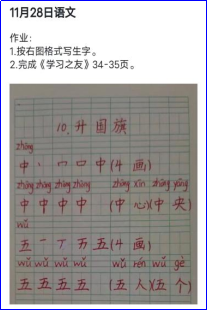 11月28日语文
作业：
1.按右图格式写生字。
2.完成《学习之友》34-35页。
10.升国旗
zhōng
中 丶 冖 口 中(4 画)
zhōng zhōng zhōng zhōng zhōng xīn zhōng yāng
中 中 中 中 (中 心)(中 央)
wǔ
五 一 丁 五 五(4 画)
wǔ wǔ wǔ wǔ wǔ rén wǔ gè
五 五 五 五 (五 人)(五 个)